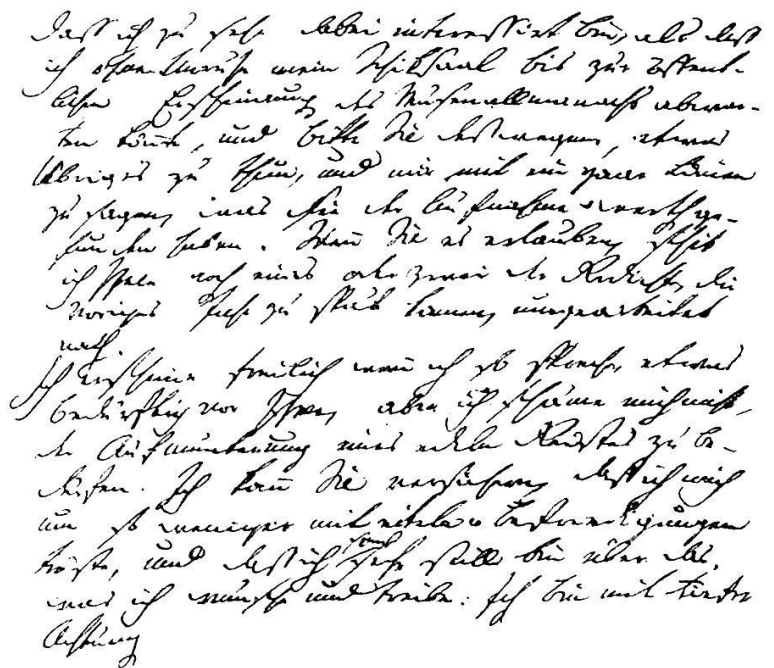 daß ich zu sehr dabei interessirt bin, als daß
ich ohne Unruhe mein Schiksaal bis zur öffent-
lichen Erscheinung des Musenallmanachs abwar-
ten könnte, und bitte Sie deswegen, etwas
Übriges zu thun, und mir mit ein paar Linien
zu sagen, was Sie der Aufnahme werth ge-
funden haben. Wenn Sie es erlauben, schik
ich Ihnen noch eines oder zwei der Gedichte, die
voriges Jahr zu spät kamen, umgearbeitet
nach.
Ich erscheine freilich, wenn ich so spreche, etwas
bedürftig vor Ihnen, aber ich schäme mich nicht,
der Aufmunterung eines edeln Geistes zu be-
dürfen. Ich kann Sie versichern, daß ich mich
um so weniger mit eiteln Befriedigungen
tröste, und daß ich sonst sehr still bin über das,
was ich wünsche und treibe. Ich bin mit tiefer
Achtung